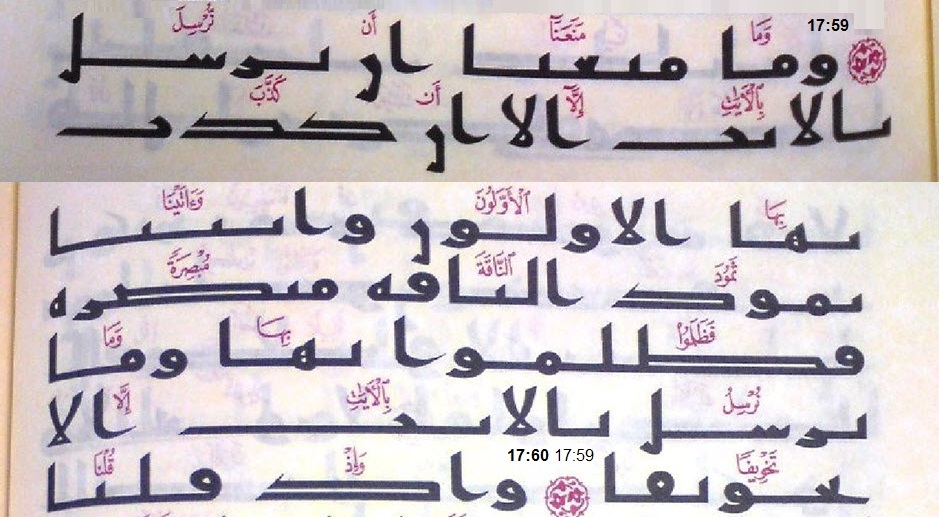 17:59
وَمَا مَنَعَنَآ أَن نُّرْسِلَ
وما منعنا ان نرسل
بِٱلْأَيَٰتِ إِلَّآ أَن كَذَّبَ
بالايت الا ان كذب
بِهَا ٱلْأَوَّلُونَ وَءَاتَيْنَا
بها الاولون واتينا
ثَمُودَ ٱلنَّاقَةَ مُبْصِرَةً
ثمود الناقه مبصره
فَظَلَمُوا۟ بِهَا وَمَا
فظلموا بها وما
نُرْسِلُ بِٱلْأَيَٰتِ إِلَّا
نرسل بالايت الا
17:60 17:59
تَخْوِيفًا وَإِذْ قُلْنَا
تخويفا واذ قلنا